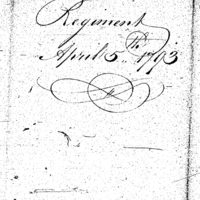 Regiment
April 5th 1793